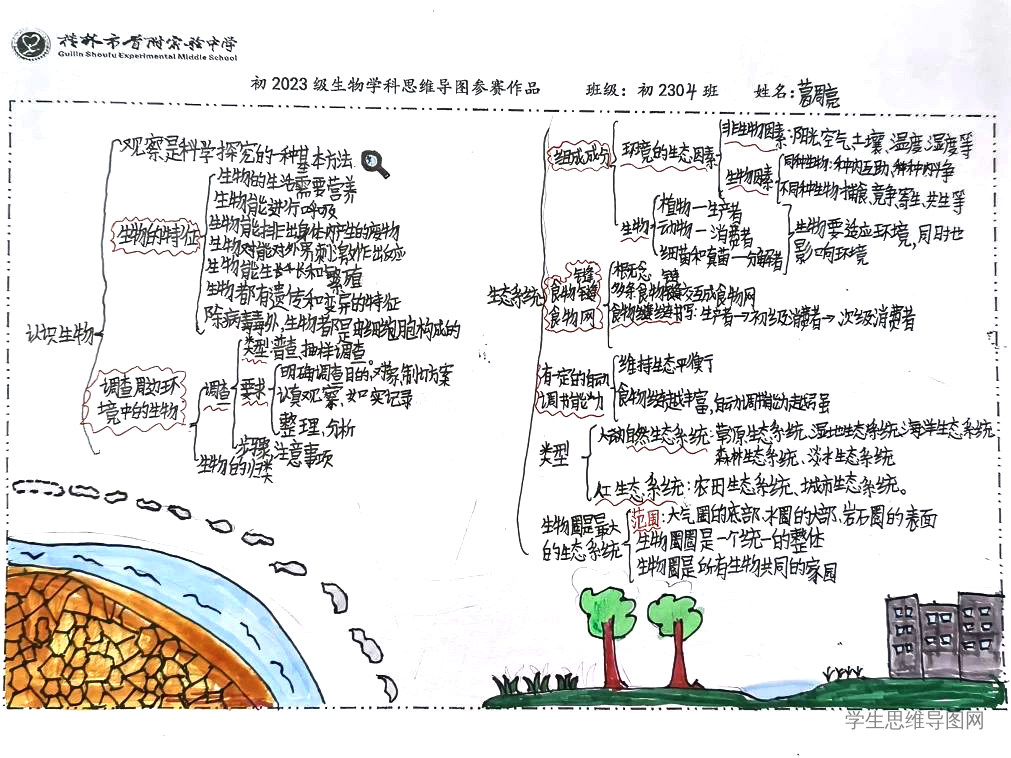 桂林市首附实验中学
Guilin Shoufu Experimental Middle School
初2023级生物学科思维导图参赛作品 班级：初2304班 姓名：
认识生物
观察是科学探究的一种基本方法.
生物的特征
生物的生活需要营养
生物能进行呼吸
生物能排出身体内产生的废物
生物对能对外界刺激作出反应
生物能生长和繁殖
生物都有遗传和变异的特征
除病毒外,生物都是由细胞构成的
调查周边环
境中的生物
调查
类型:普查、抽样调查。
要求
明确调查目的,对象,制订方案
认真观察,如实记录
整理,分析
步骤,注意事项
生物的归类
生态系统
组成成分
环境的生态因素
非生物因素:阳光,空气,土壤、温度、湿度等
生物因素
同种生物:种内互助、种内斗争
不同种生物:捕食,竞争,寄生、共生等
生物
植物一生产者
动物一消费者
细菌和真菌一分解者
生物要适应环境,同时也
影响环境
食物链
食物网
概念 链
多条食物链交互成食物网
食物链书写:生产者→初级消费者→次级消费者
有一定的自动
调节能力
维持生态平衡
食物网越丰富,自动调节能力越强
类型
自然生态系统:草原生态系统、湿地生态系统、海洋生态系统
森林生态系统、淡水生态系统
人工生态系统:农田生态系统、城市生态系统。
生物圈是最大
的生态系统
范围:大气圈的底部、水圈的大部、岩石圈的表面
生物圈是一个统一的整体
生物圈是所有生物共同的家园
学生思维导图网